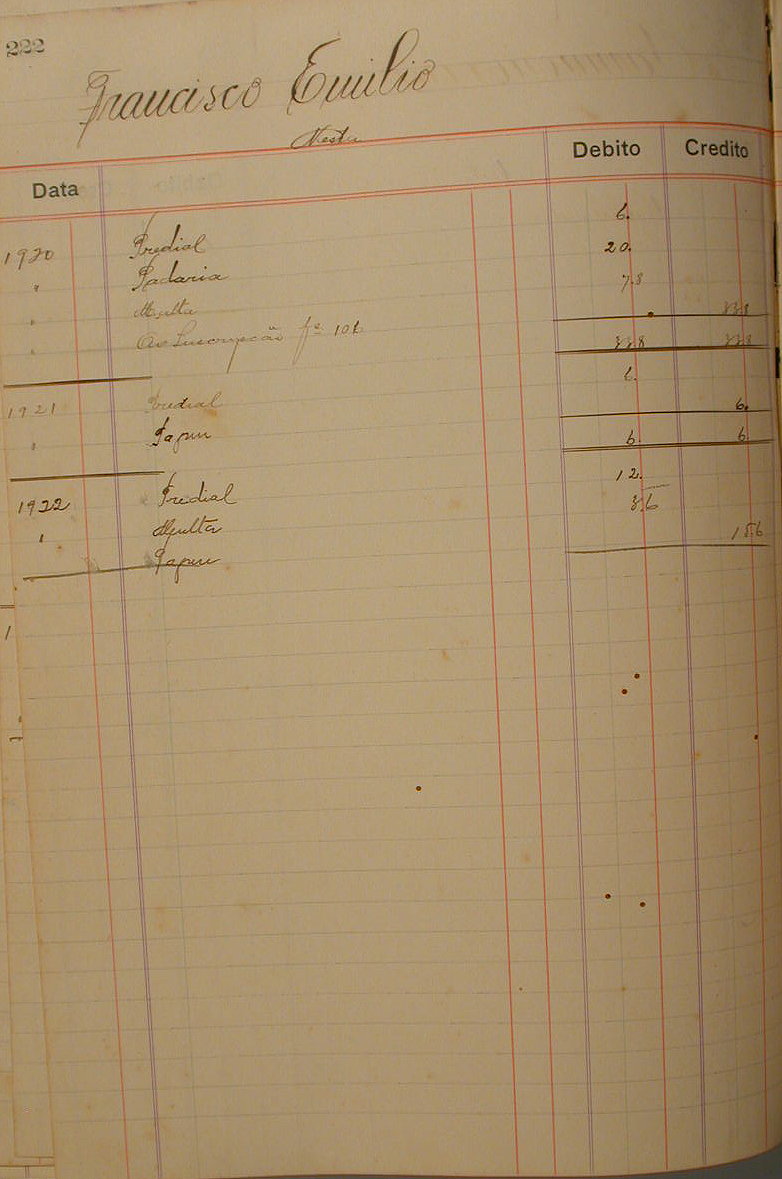 222
Francisco Emilio
Nesta
Data Debito Credito
1920 Predial 6.
" Padaria 20.
" Multa 7.8
" Ao Inscripção fs 101 33.8
33.8 33.8
1921 Predial 6.
" Pagou 6.
6. 6.
1922 Predial 12.
" Multa 3.6
Pagou 15.6